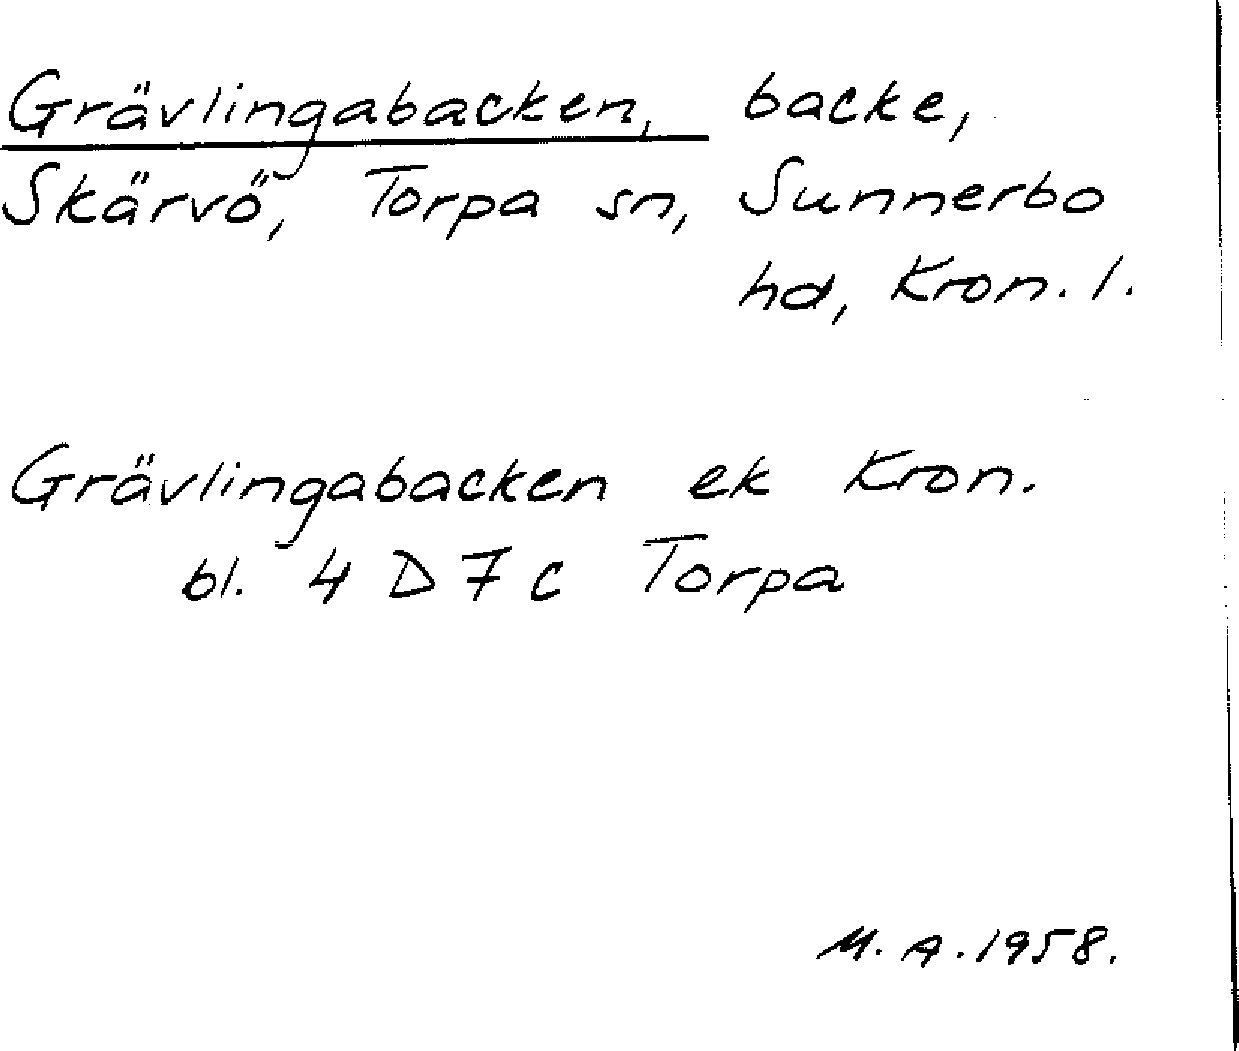 Grävlingabacken, backe,
Skärvö, Torpa sn, Sunnerbo
hd, Kron. l.
Grävlingabacken ek Kron.
bl. 4 D 7 c Torpa
M. A. 1958.